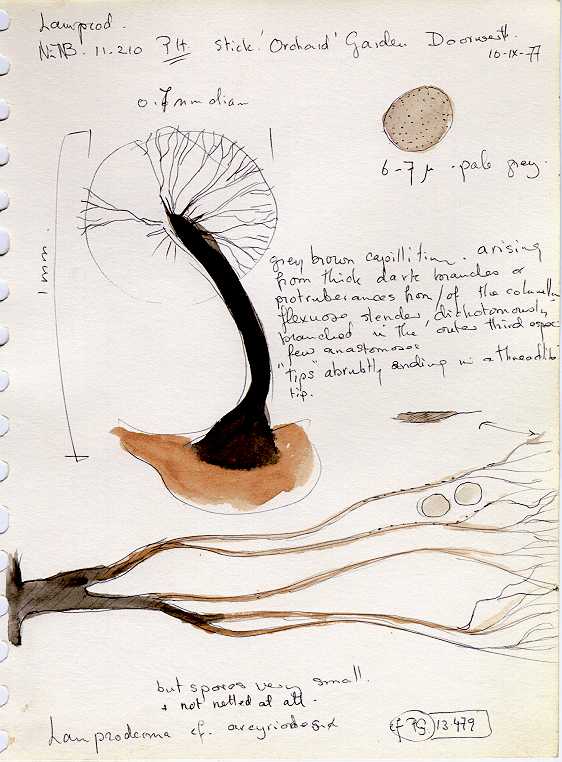 Lamprod.
NENB. 11-210 ? H stick 'Orchard' Garden Doorwerth.
10-IX-77
0.7 mm diam
6-7 µ . pale grey.
1 mm
grey brown capillitium. arising
from thick dark branches or
protruberances from/of the columella
flexuose slender dichotomously
branched in the outer third espec
few anastomoses
"tips" abrubtly ending in a threadlike
tip.
but spores very small.
+ not netted at all.
Lamproderma cf. arcyrioides
cf PS. 13479